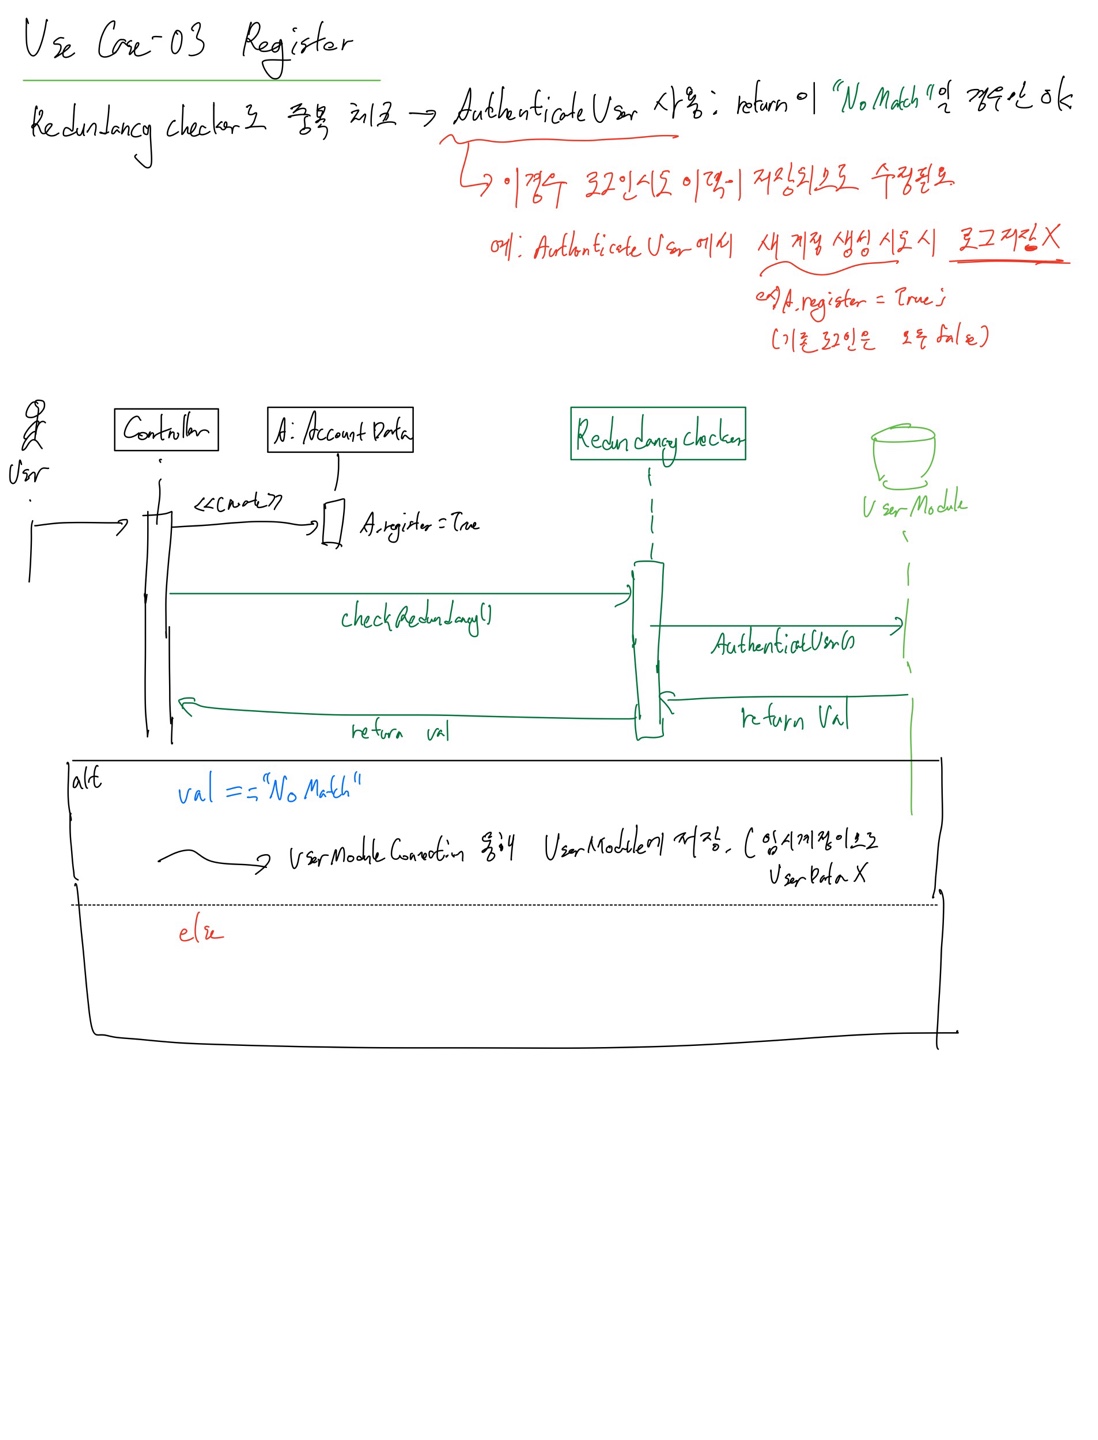 Use Case-03 Register
Redundancy checker로 중복 체크 → Authenticate User 사용: return이 "No Match"일 경우만 ok
↳ 이경우 로그인시도 이력이 저장되므로 수정필요
예: Authenticate User에서 새 계정 생성 시도 시 로그저장X
ex) A.register = True;
(기존 로그인은 모두 false)
User
Controller
A: Account Data
Redundancy checker
User Module
<<Create>>
A.register = True
checkRedundancy()
AuthenticateUser()
return val
return Val
alt
val == "No Match"
→ UserModule Connection 통해 UserModule에 저장. (임시계정이므로
UserData X
else